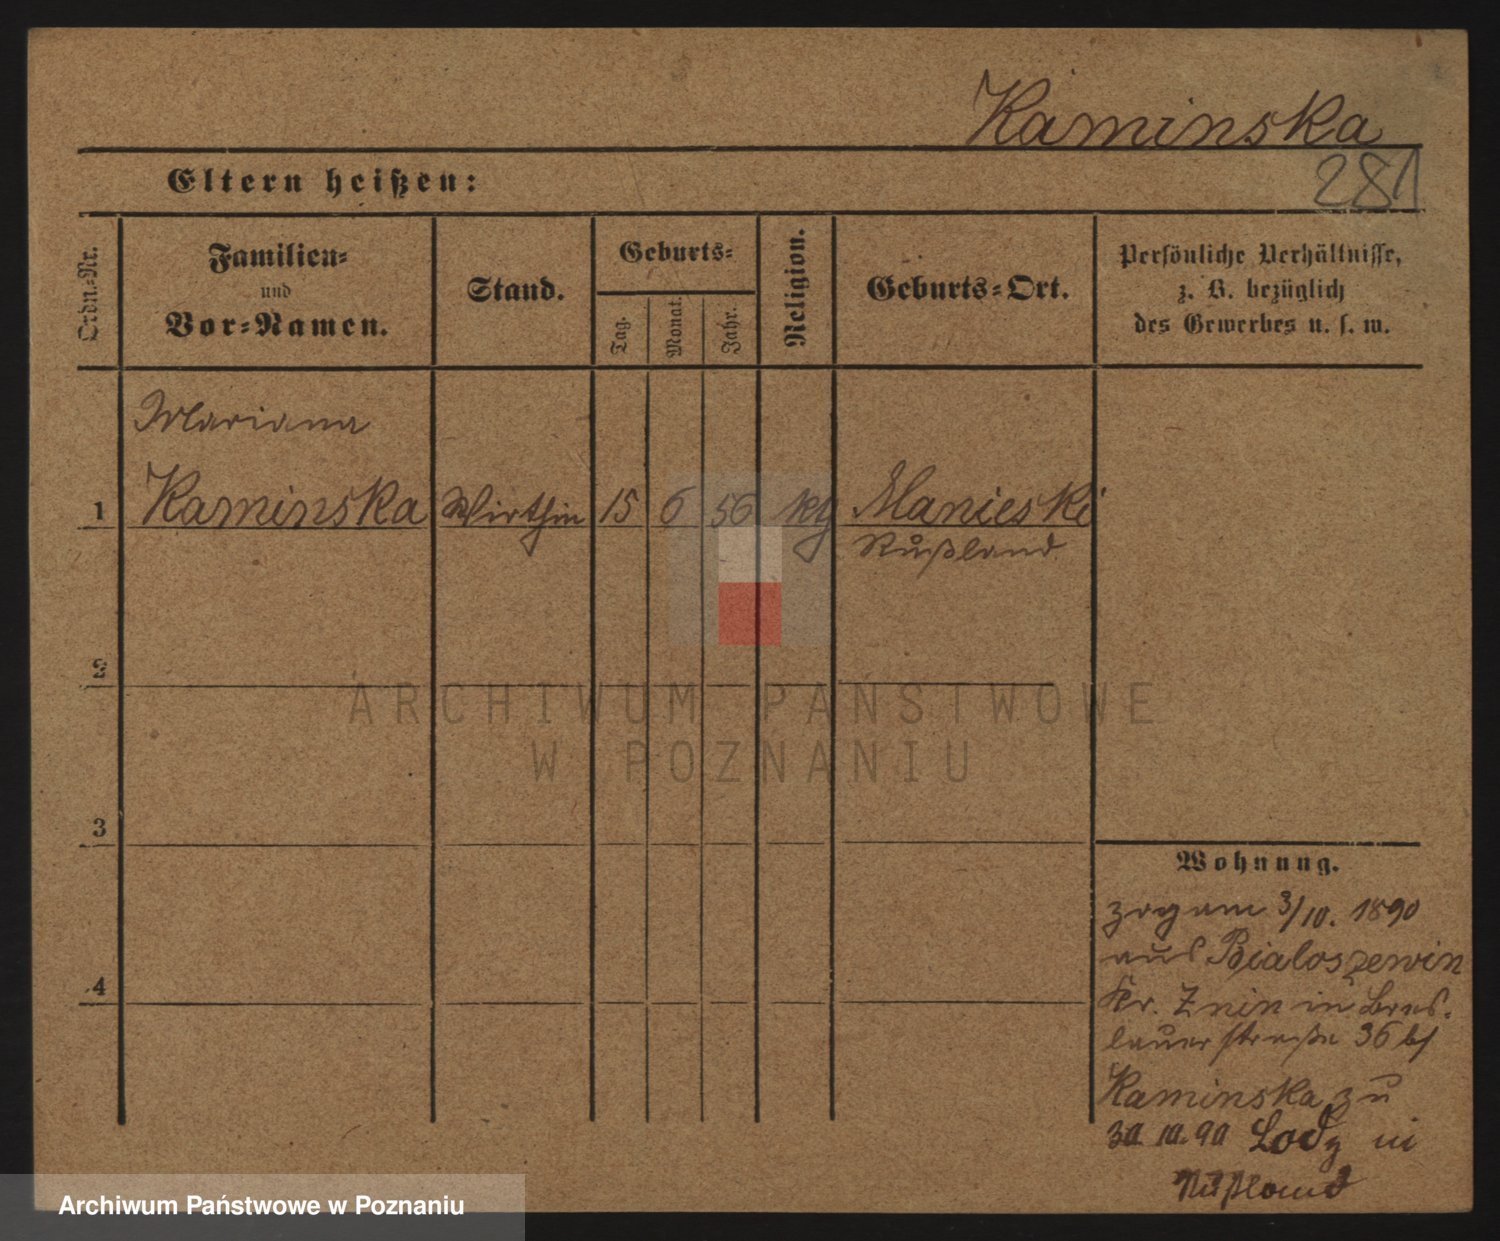 Kaminska
281
Eltern heißen:
Ordn.-Nr.
Familien-
und
Vor-Namen.
Stand.
Geburts-
Tag.
Monat.
Jahr.
Religion.
Geburts-Ort.
Persönliche Verhältnisse,
z. B. bezüglich
des Gewerbes u. s. w.
Mariana
1 Kaminska Wirthin 15 6 56 Manieski
Rußland
2
ARCHIWUM PAŃSTWOWE
W POZNANIU
3
Wohnung.
zog am 3/10. 1890
aus Bialoszewin
4
Kr. Znin in Bres-
lauerstraße 36 b/
Kaminska zu
30.10.90 Lodz in
Rußland
Archiwum Państwowe w Poznaniu